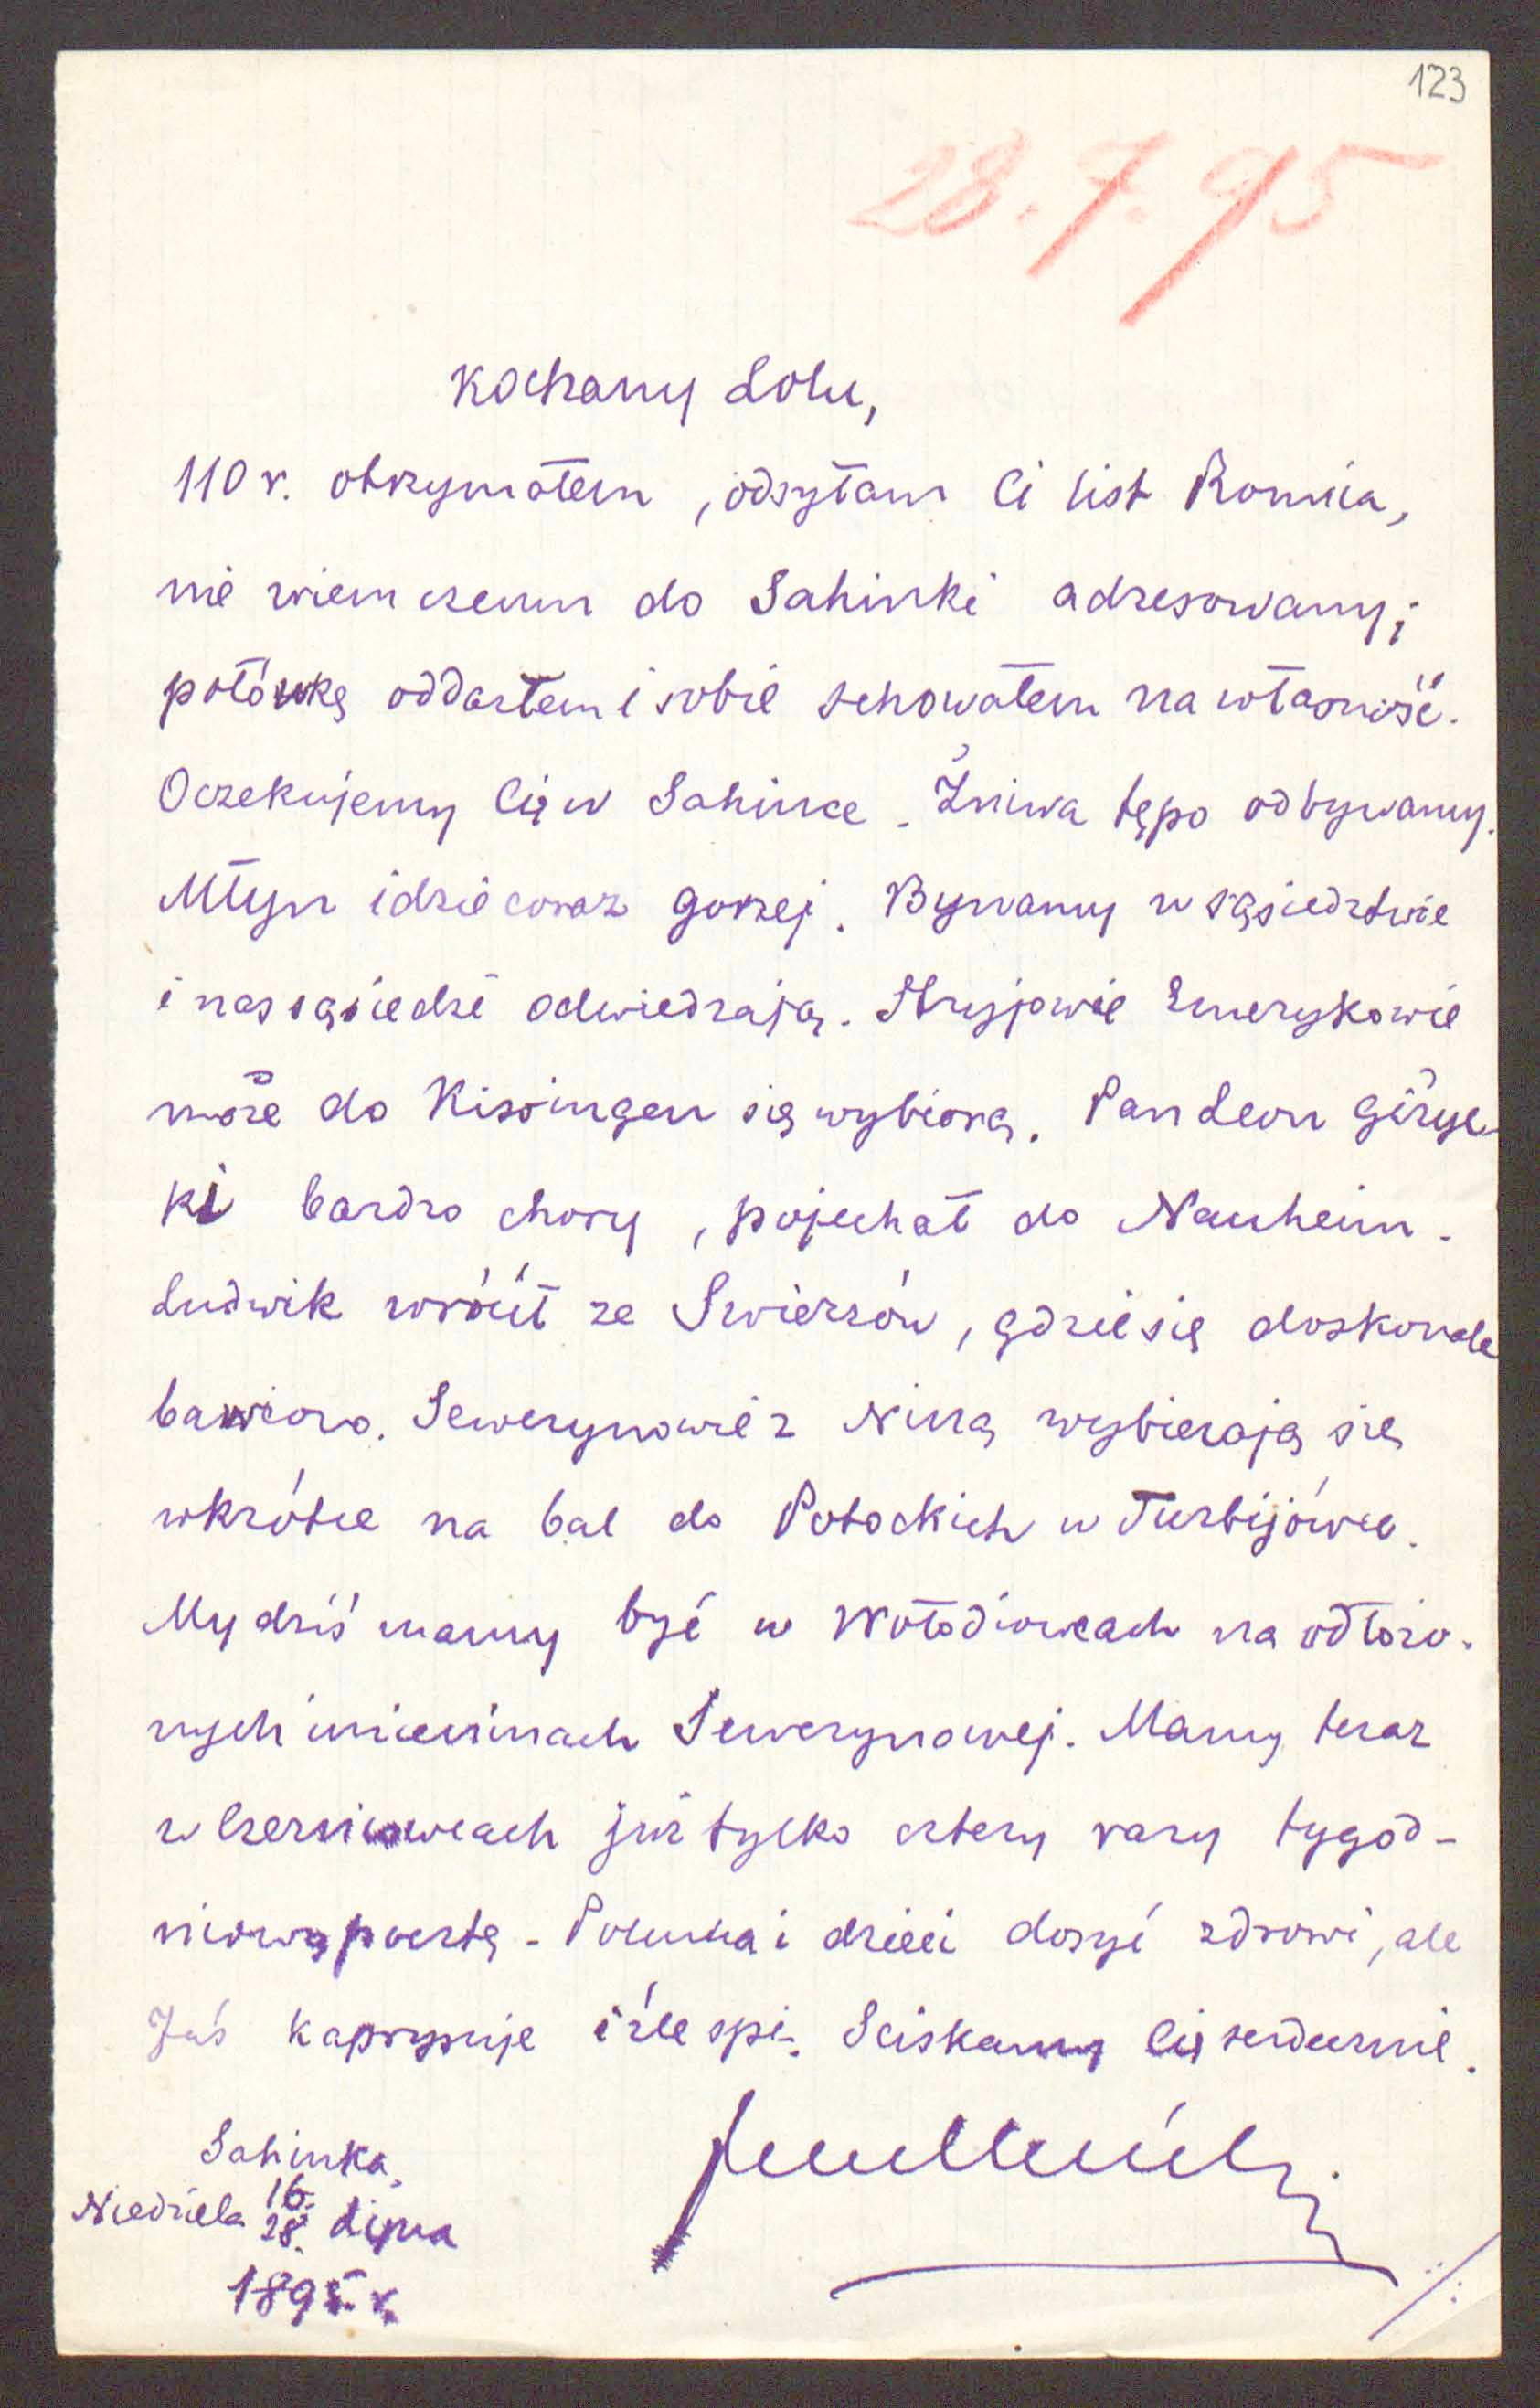 123
28.7.95
Kochany Lolu,
110 r. otrzymałem, odsyłam Ci list Romcia,
nie wiem czemu do Sahinki adresowany;
połówkę oddarłem i sobie schowałem na własność.
Oczekujemy Cię w Sahince. Żniwa tępo odbywamy.
Młyn idzie coraz gorzej. Bywamy w sąsiedztwie
i nas sąsiedzi odwiedzają. Stryjowie Emerykowie
może do Kissingen się wybiorą. Pan Leon Giżyc-
ki bardzo chory, pojechał do Nauheim.
Ludwik wrócił ze Swierzów, gdzie się doskonale
bawiono. Sewerynowie z Niną wybierają się
wkrótce na bal do Potockich w Turbijówce.
My dziś mamy być w Wołodiowcach na odłożo-
nych imieninach Sewerynowej. Mamy teraz
w Czerniowcach już tylko cztery razy tygod-
niowo pocztę - i dzieci dosyć zdrowi, ale
Jaś kaprysuje i źle spi. Sciskamy Cię serdecznie.
Sahinka,
Niedziela 16./28. Lipca
1895 r.